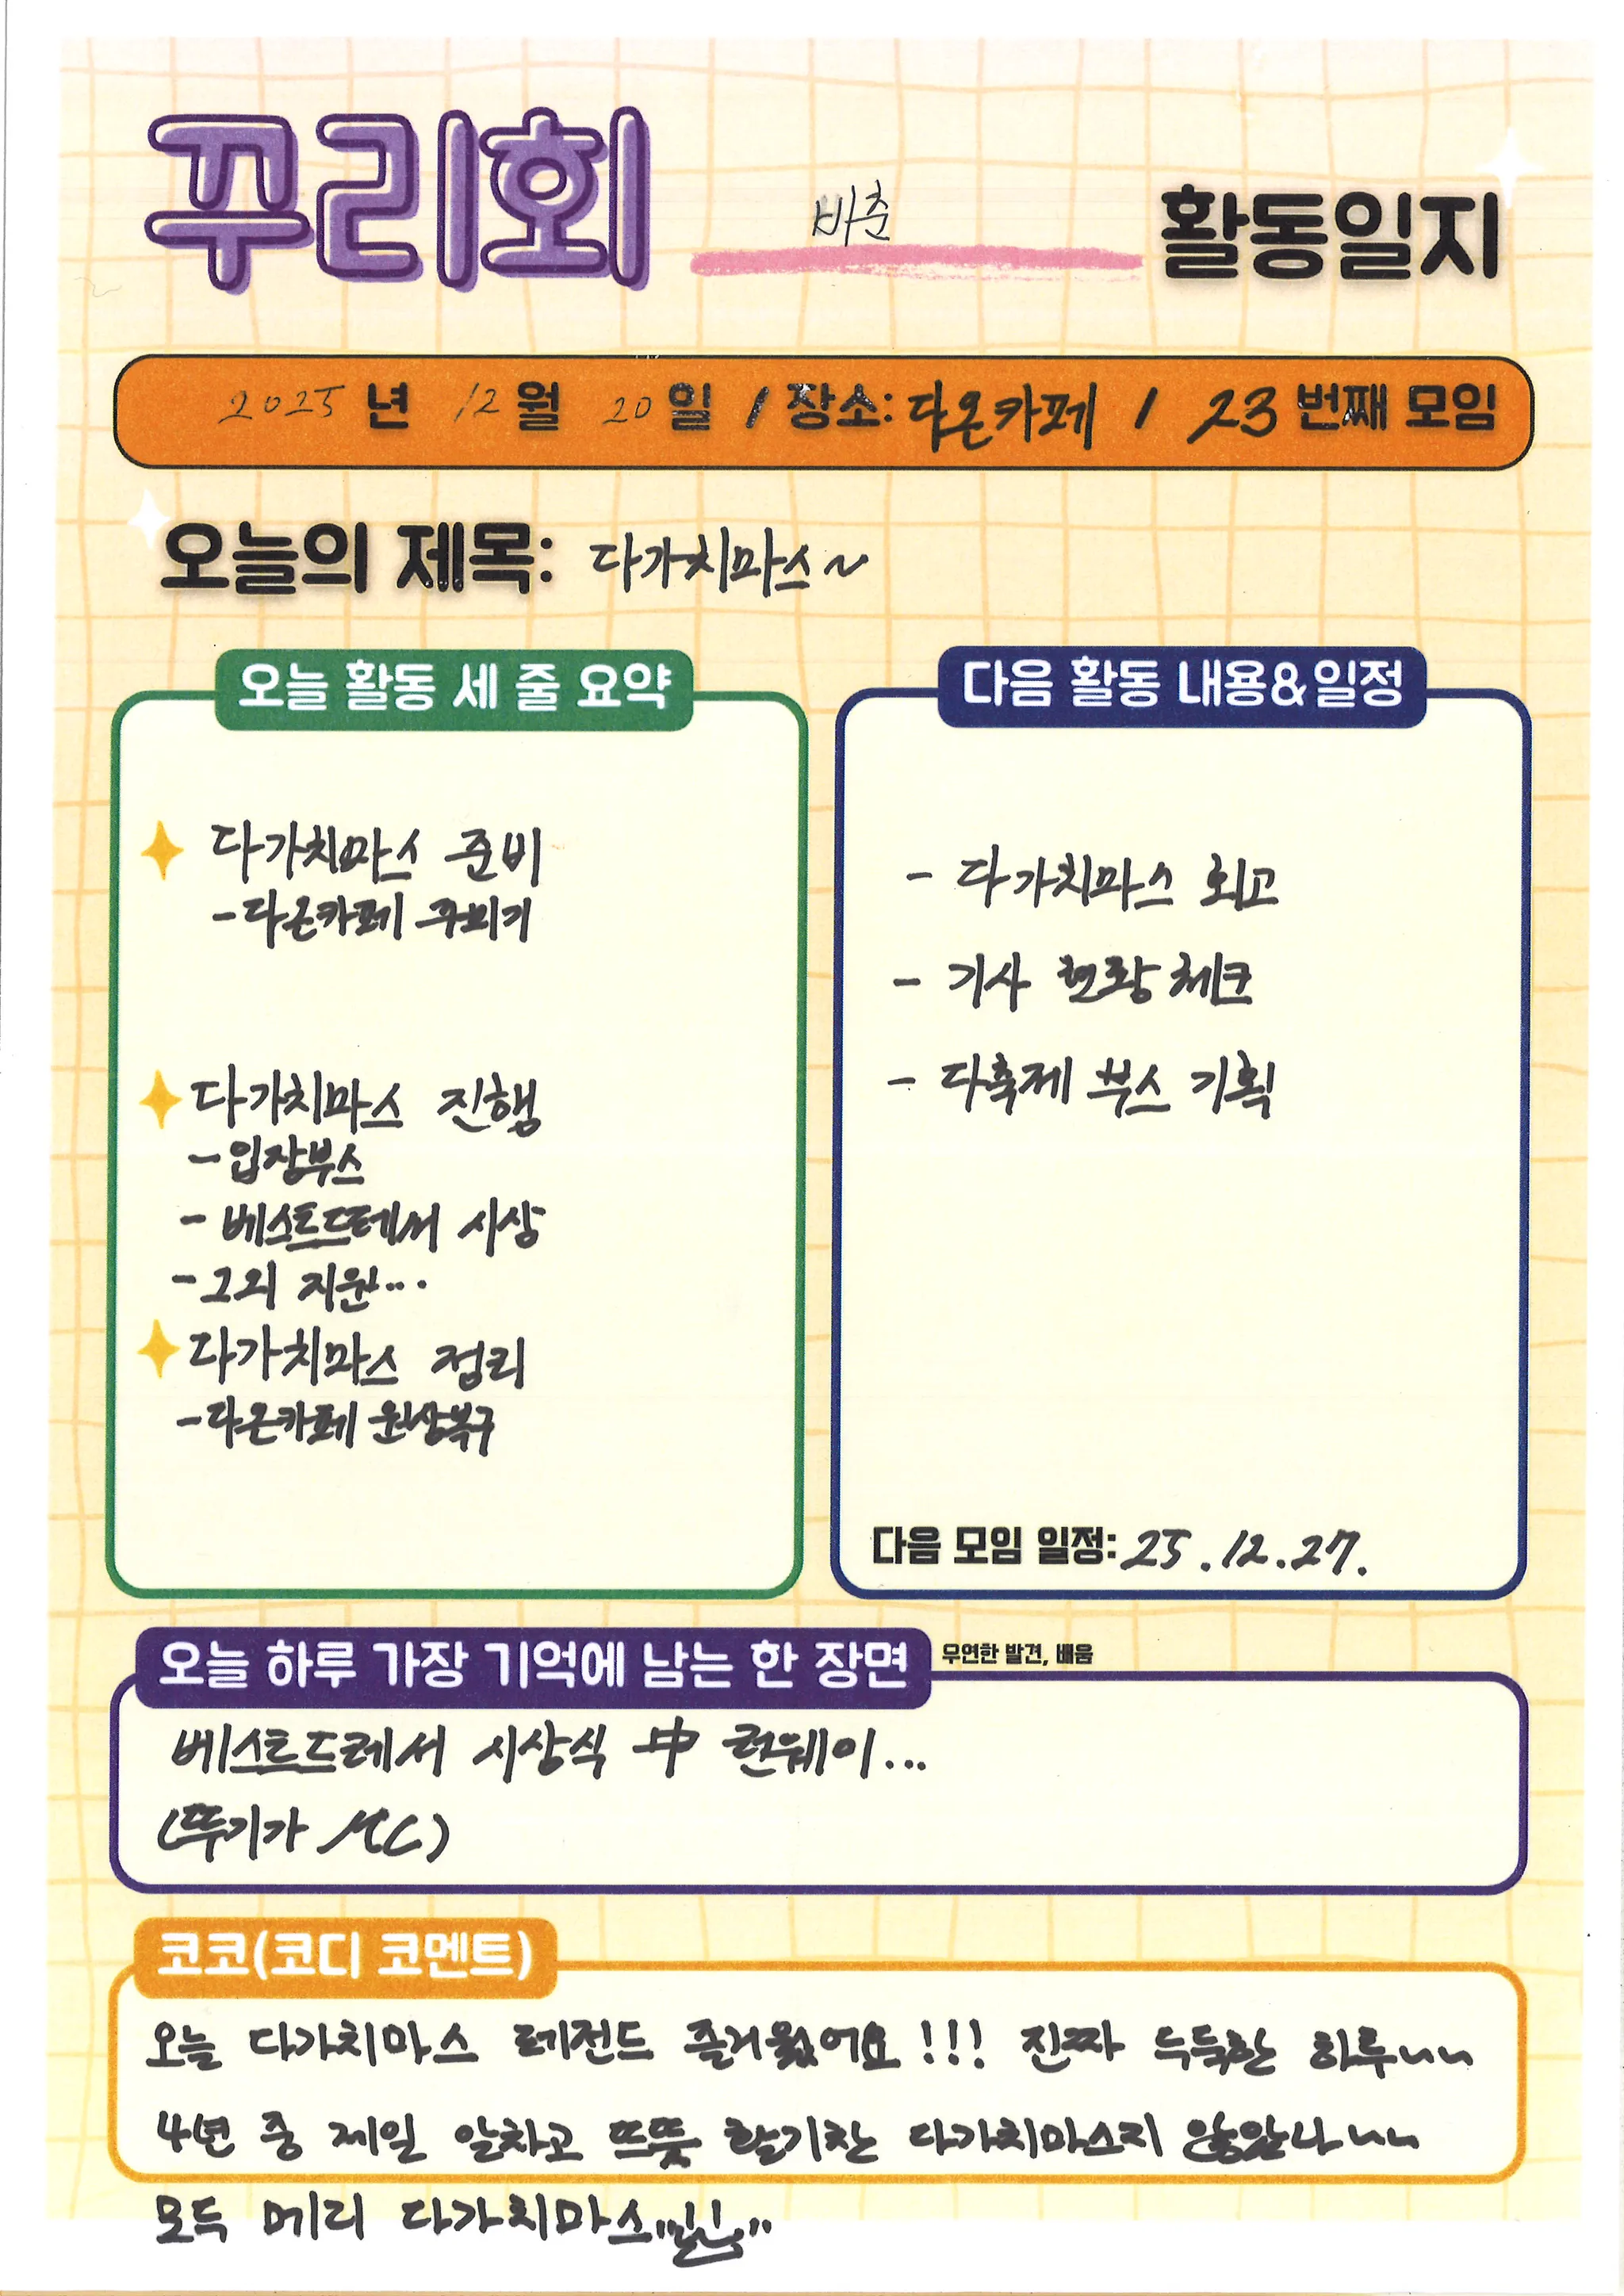 꾸리회 바춘 활동일지
2025년 12월 20일 / 장소: 다온카페 / 23번째 모임
오늘의 제목: 다가치마스~
오늘 활동 세 줄 요약
다가치마스 준비
- 다온카페 꾸미기
다가치마스 진행
- 입장부스
- 베스트드레서 시상
- 그외 지원...
다가치마스 정리
- 다온카페 원상복구
다음 활동 내용&일정
- 다가치마스 회고
- 기사 현황 체크
- 다축제 부스 기획
다음 모임 일정: 25.12.27.
오늘 하루 가장 기억에 남는 한 장면 우연한 발견, 배움
베스트드레서 시상식 中 런웨이...
(뚜기가 MC)
코코(코디 코멘트)
오늘 다가치마스 레전드 즐거웠어요!!! 진짜 득득한 하루~~
4년 중 제일 알차고 뜨뜻 활기찬 다가치마스지 않았나~~
모두 메리 다가치마스